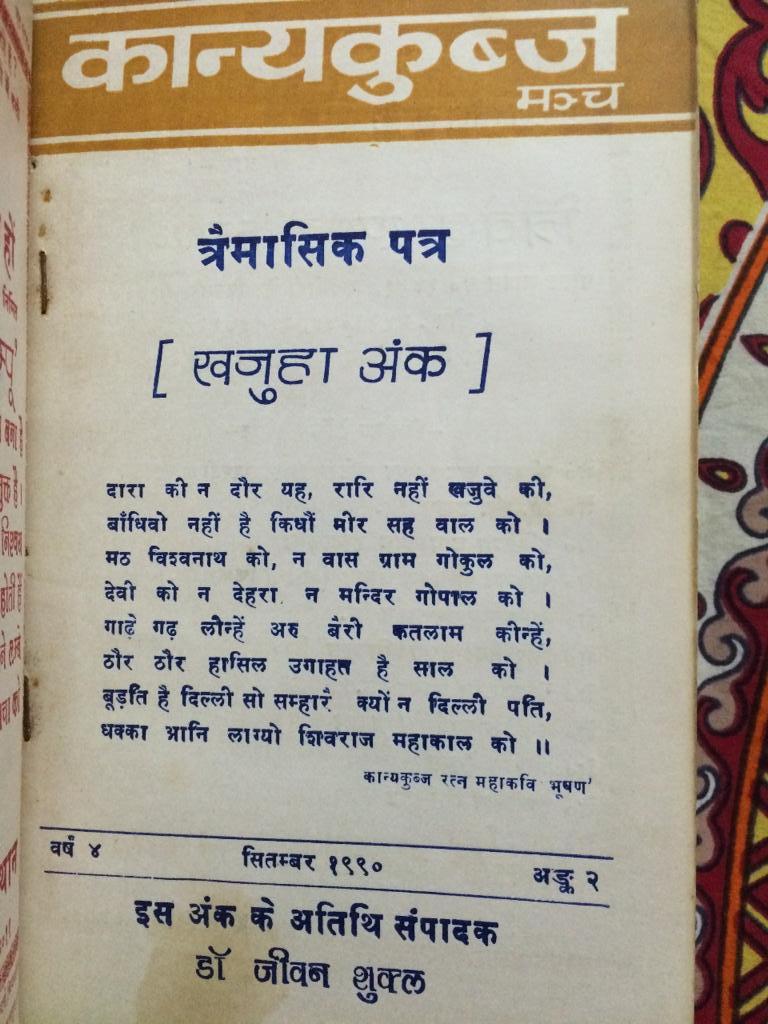 कान्यकुब्ज
मञ्च
त्रैमासिक पत्र
[ खजुहा अंक ]
दारा की न दौर यह, रारि नहीं खजुवे की,
बाँधिवो नहीं है किधौं मीर सह वाल को ।
मठ विश्वनाथ को, न वास ग्राम गोकुल को,
देवी को न देहरा. न मन्दिर गोपाल को ।
गाढ़े गढ़ लीन्हें अरु बैरी कतलाम कीन्हें,
ठौर ठौर हासिल उगाहत है साल को ।
बूड़ति है दिल्ली सो सम्हारै क्यों न दिल्ली पति,
धक्का आनि लाग्यो शिवराज महाकाल को ॥
कान्यकुब्ज रत्न महाकवि भूषण'
वर्ष ४ सितम्बर १९९० अङ्क २
इस अंक के अतिथि संपादक
डॉ जीवन शुक्ल